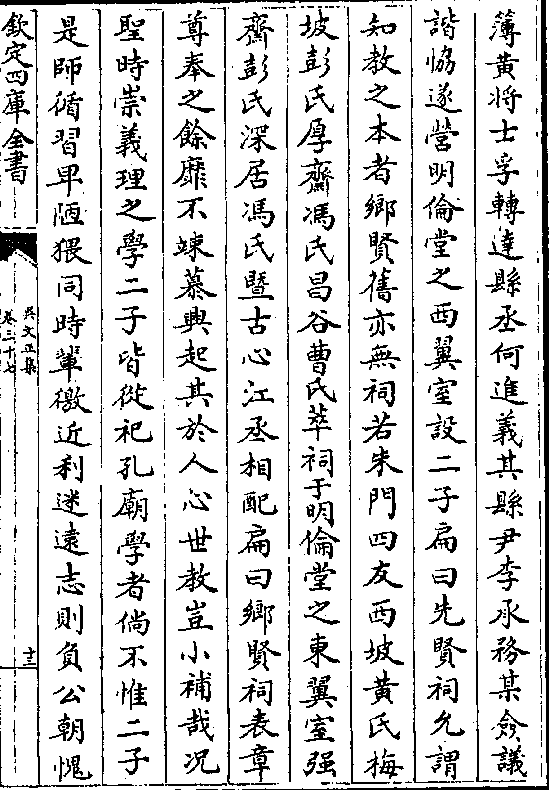 簿黄将士孚轉達縣丞何進義其縣尹李承務某僉議
諧恊遂營明倫堂之西翼室設二子扁曰先賢祠允謂
知教之本者鄉賢舊亦無祠若朱門四友西坡黄氏梅
坡彭氏厚齋馮氏昌谷曹氏萃祠于明倫堂之東翼室强
齋彭氏深居馮氏暨古心江丞相配扁曰鄉賢祠表章
尊奉之餘靡不竦慕興起其於人心世教豈小補哉况
聖時崇義理之學二子皆從祀孔廟學者倘不惟二子
是師循習卑陋猥同時輩徼近利迷遠志則負公朝愧
欽定四庫全書
吳文正集
卷三十七
十三